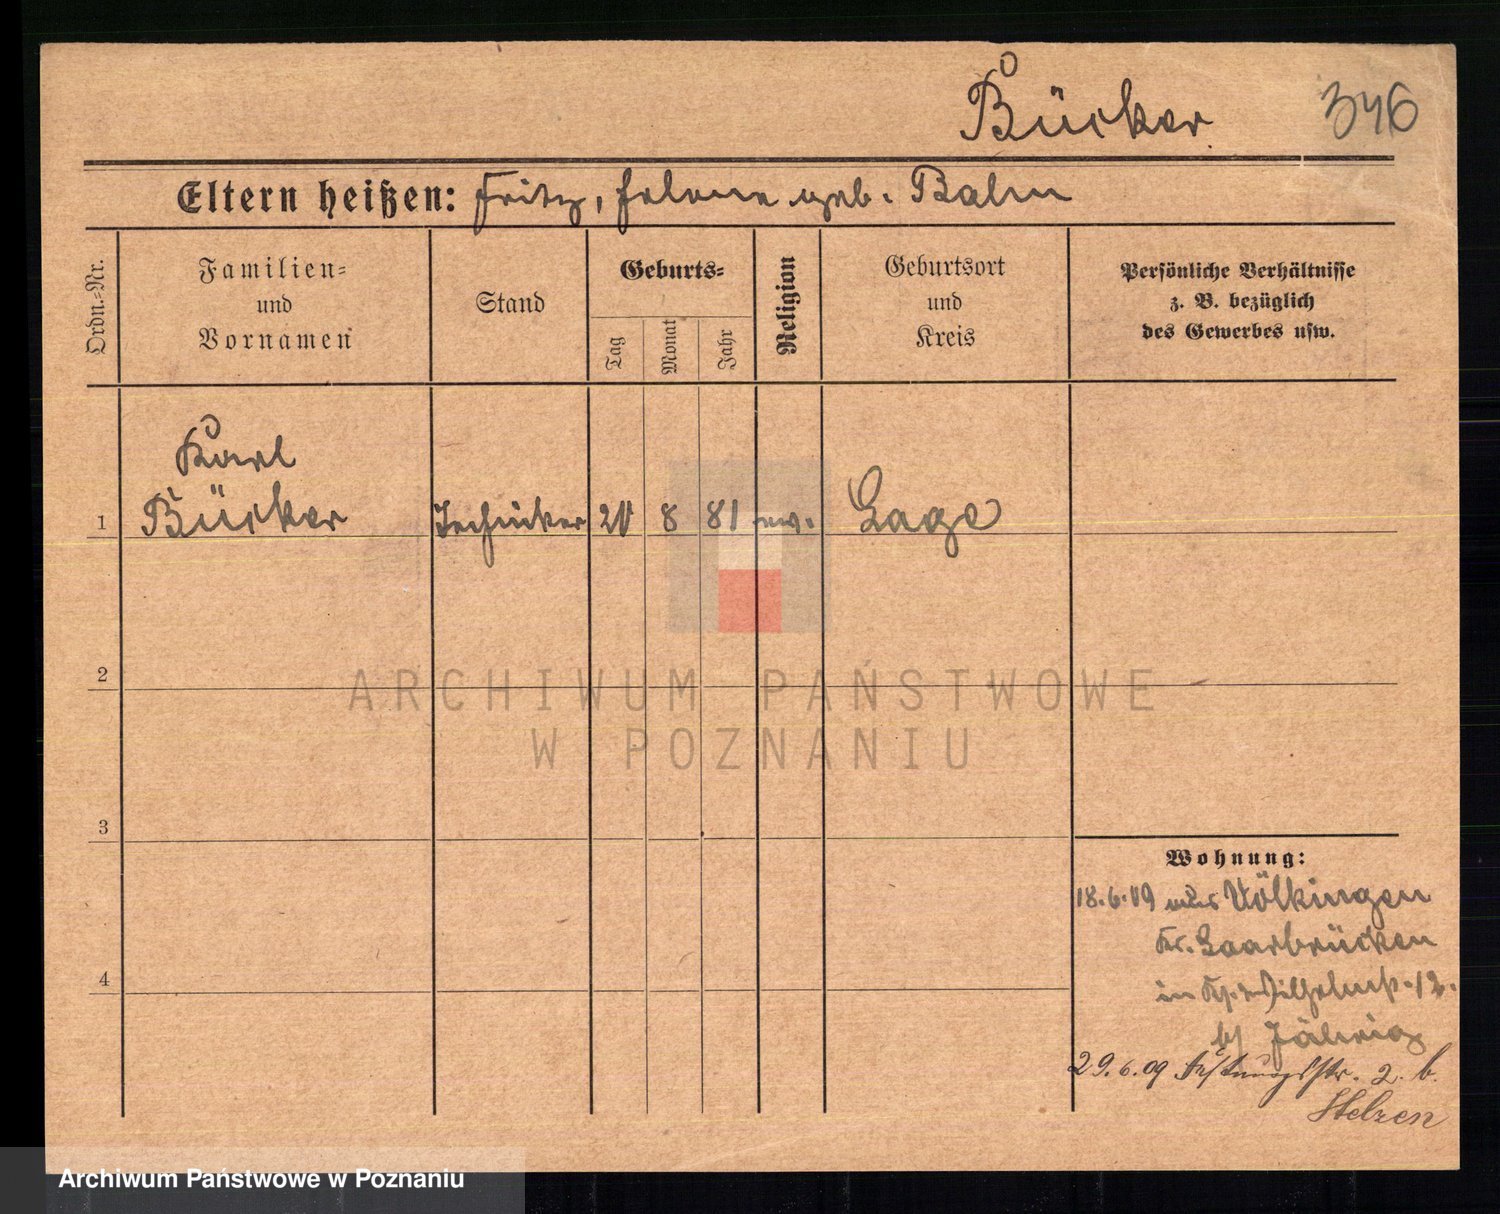 Bücker 346
Eltern heißen: Fritz, Helene geb. Balm
Ordn.=Nr.
Familien=
und
Vornamen
Stand
Geburts=
Tag
Monat
Jahr
Religion
Geburtsort
und
Kreis
Persönliche Verhältnisse
z. B. bezüglich
des Gewerbes usw.
Karl
1 Bücker Techniker 20 8 81 ev. Lage
2
3
4
Wohnung:
18.6.09 aus Völkingen
Kr. Saarbrücken
in 12.
b/ Jährig
29.6.09 Festungsstr. 2. b.
Stelzen
ARCHIWUM PAŃSTWOWE
W POZNANIU
Archiwum Państwowe w Poznaniu